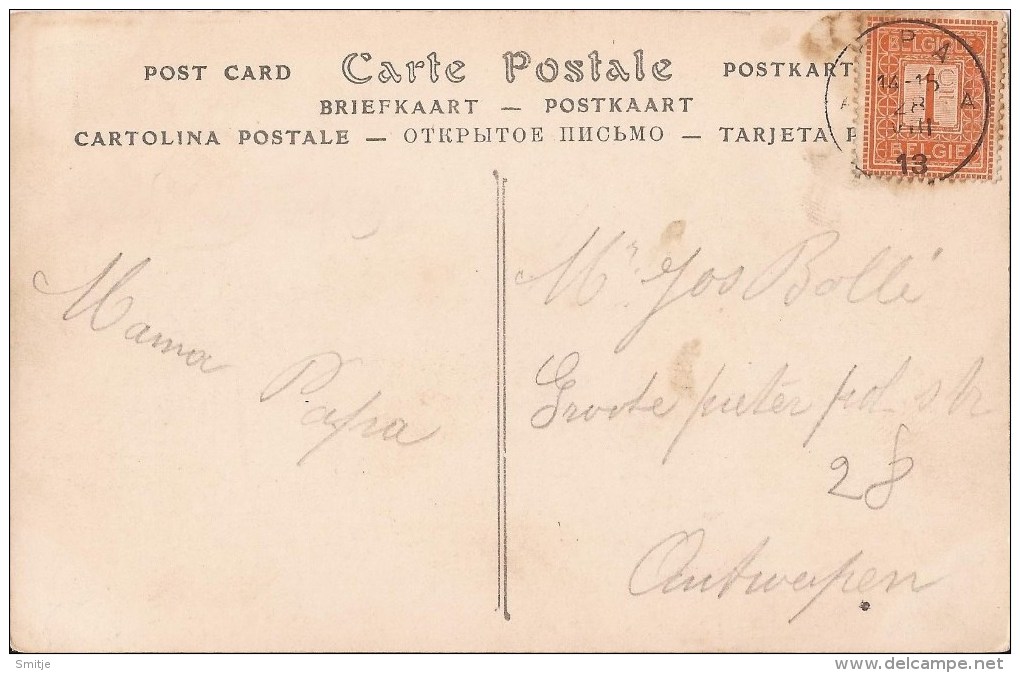 POST CARD Carte Postale POSTKART
BRIEFKAART — POSTKAART
CARTOLINA POSTALE — ОТКРЫТОЕ ПИСЬМО — TARJETA P
BELGIQUE
1
BELGIE
14-15
VIII
13
Mama
Papa
Mr. Jos Bollé
Groote pieter pot str
28
Antwerpen
Smitje
www.delcampe.net